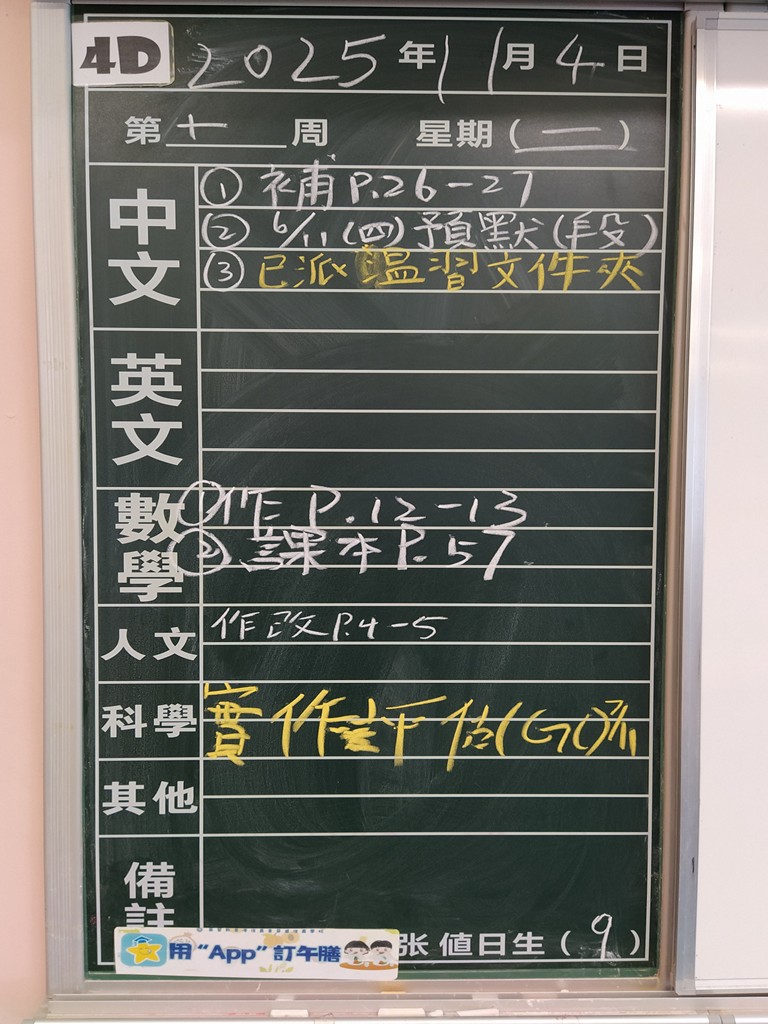 4D 2025年11月4日
第十周 星期(二)
中文
① 補 P.26-27
② 6/11(四)預默(段)
③ 已派溫習文件夾
英文
數學
① 作 P.12-13
② 課本 P.57
人文 作改 P.4-5
科學 實作評估(G1)派
其他
備註
用“App”訂午膳
张 值日生(9)